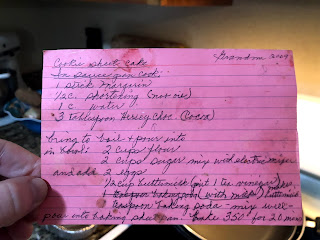 Grandma 2009
Cookie sheet cake
In sauce pan cook
1 stick margurin
1/2 c. shortening (not oil)
1 c water
3 tablespoon Hersey Choc. (Cocoa)
bring to boil & pour into
in bowl: 2 cups flour
2 cups sugar mix with electric mixer
and add 2 eggs
1/2 cup buttermilk (put 1 tea vinegar makes
(with milk) buttermilk
teaspoon baking soda - mix well -
pour into baking sheet pan. bake 350 for 20 mins